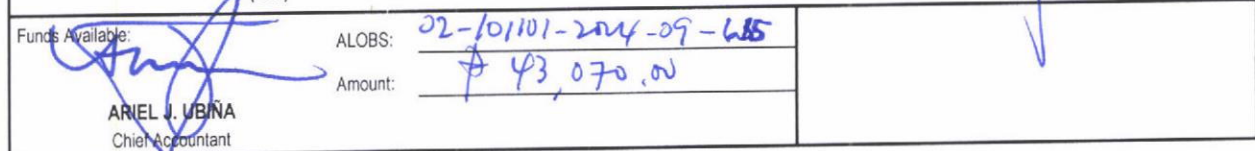 Funds Available:
ALOBS: 02-101101-2024-09-
Amount: ₱ 43,070.00
ARIEL J. UBIÑA
Chief Accountant